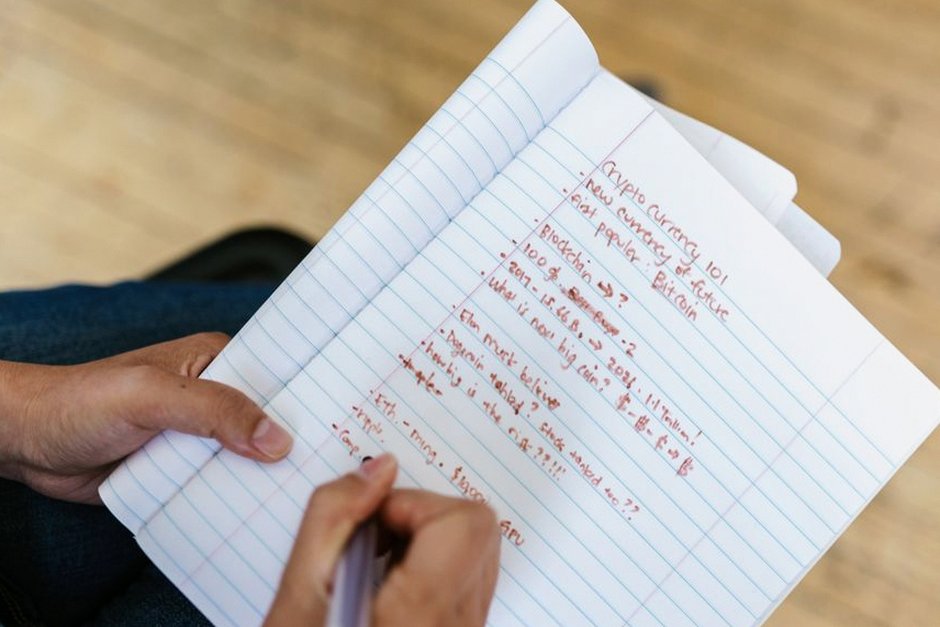 Crypto Currency 101
- new currency of future
- first popular : Bitcoin
- Blockchain → ?
- 100 of
- 2017 - 15.66 B. → 2024 1.1 trillion!
- What is next big coin? $ - $ - $ → $
- Elon musk believer
- Dogecoin tanked? stock tanked too??
- how big is the risk???!!!
- Eth. - mining - $1000 GPU
- ripple